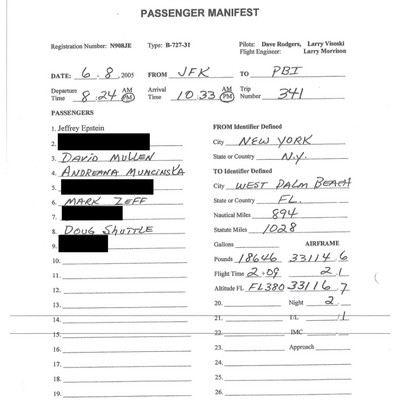 PASSENGER MANIFEST
Registration Number: N908JE Type: B-727-31 Pilots: Dave Rodgers, Larry Visoski
Flight Engineer: Larry Morrison
DATE: 6.8, 2005 FROM JFK TO PBI
Departure Time 8:24 AM PM Arrival Time 10:33 AM PM Trip Number 341
PASSENGERS
1. Jeffrey Epstein
2.
3. DAVID MULLEN
4. ANDREANA MUNCINSKA
5.
6. MARK ZEFF
7.
8. DOUG SHUTTLE
9.
10.
11.
12.
13.
14.
15.
16.
17.
18.
19.
FROM Identifier Defined
City NEW YORK
State or Country N.Y.
TO Identifier Defined
City WEST PALM BEACH
State or Country FL.
Nautical Miles 894
Statute Miles 1028
Gallons AIRFRAME
Pounds 18646 33114 6
Flight Time 2:09 2 1
Altitude FL FL380 33116 7
20. Night 2
21. T/L 1
22. IMC
23. Approach
24.
25.
26.